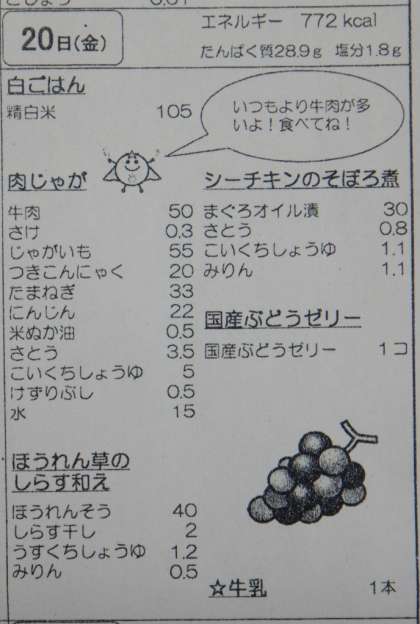 20日(金)
エネルギー 772 kcal
たんぱく質28.9g 塩分1.8g
白ごはん
精白米 105
いつもより牛肉が多
いよ!食べてね!
肉じゃが
牛肉 50
さけ 0.3
じゃがいも 55
つきこんにゃく 20
たまねぎ 33
にんじん 22
米ぬか油 0.5
さとう 3.5
こいくちしょうゆ 5
けずりぶし 0.5
水 15
ほうれん草の
しらす和え
ほうれんそう 40
しらす干し 2
うすくちしょうゆ 1.2
みりん 0.5
シーチキンのそぼろ煮
まぐろオイル漬 30
さとう 0.8
こいくちしょうゆ 1.1
みりん 1.1
国産ぶどうゼリー
国産ぶどうゼリー 1コ
☆牛乳 1本